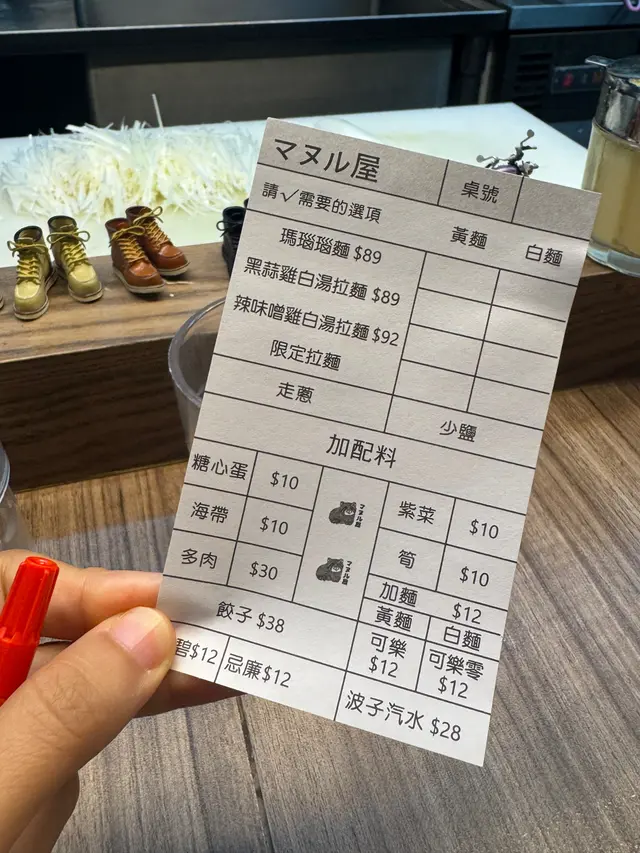 マヌル屋
桌號
請✓需要的選項
黃麵
白麵
瑪瑙瑙麵 $89
黑蒜雞白湯拉麵 $89
辣味噌雞白湯拉麵 $92
限定拉麵
走蔥
少鹽
加配料
糖心蛋 $10
紫菜 $10
海帶 $10
筍 $10
多肉 $30
加麵 $12
黃麵 白麵
餃子 $38
可樂 $12
可樂零 $12
碧$12
忌廉$12
波子汽水 $28
マヌル屋
マヌル屋